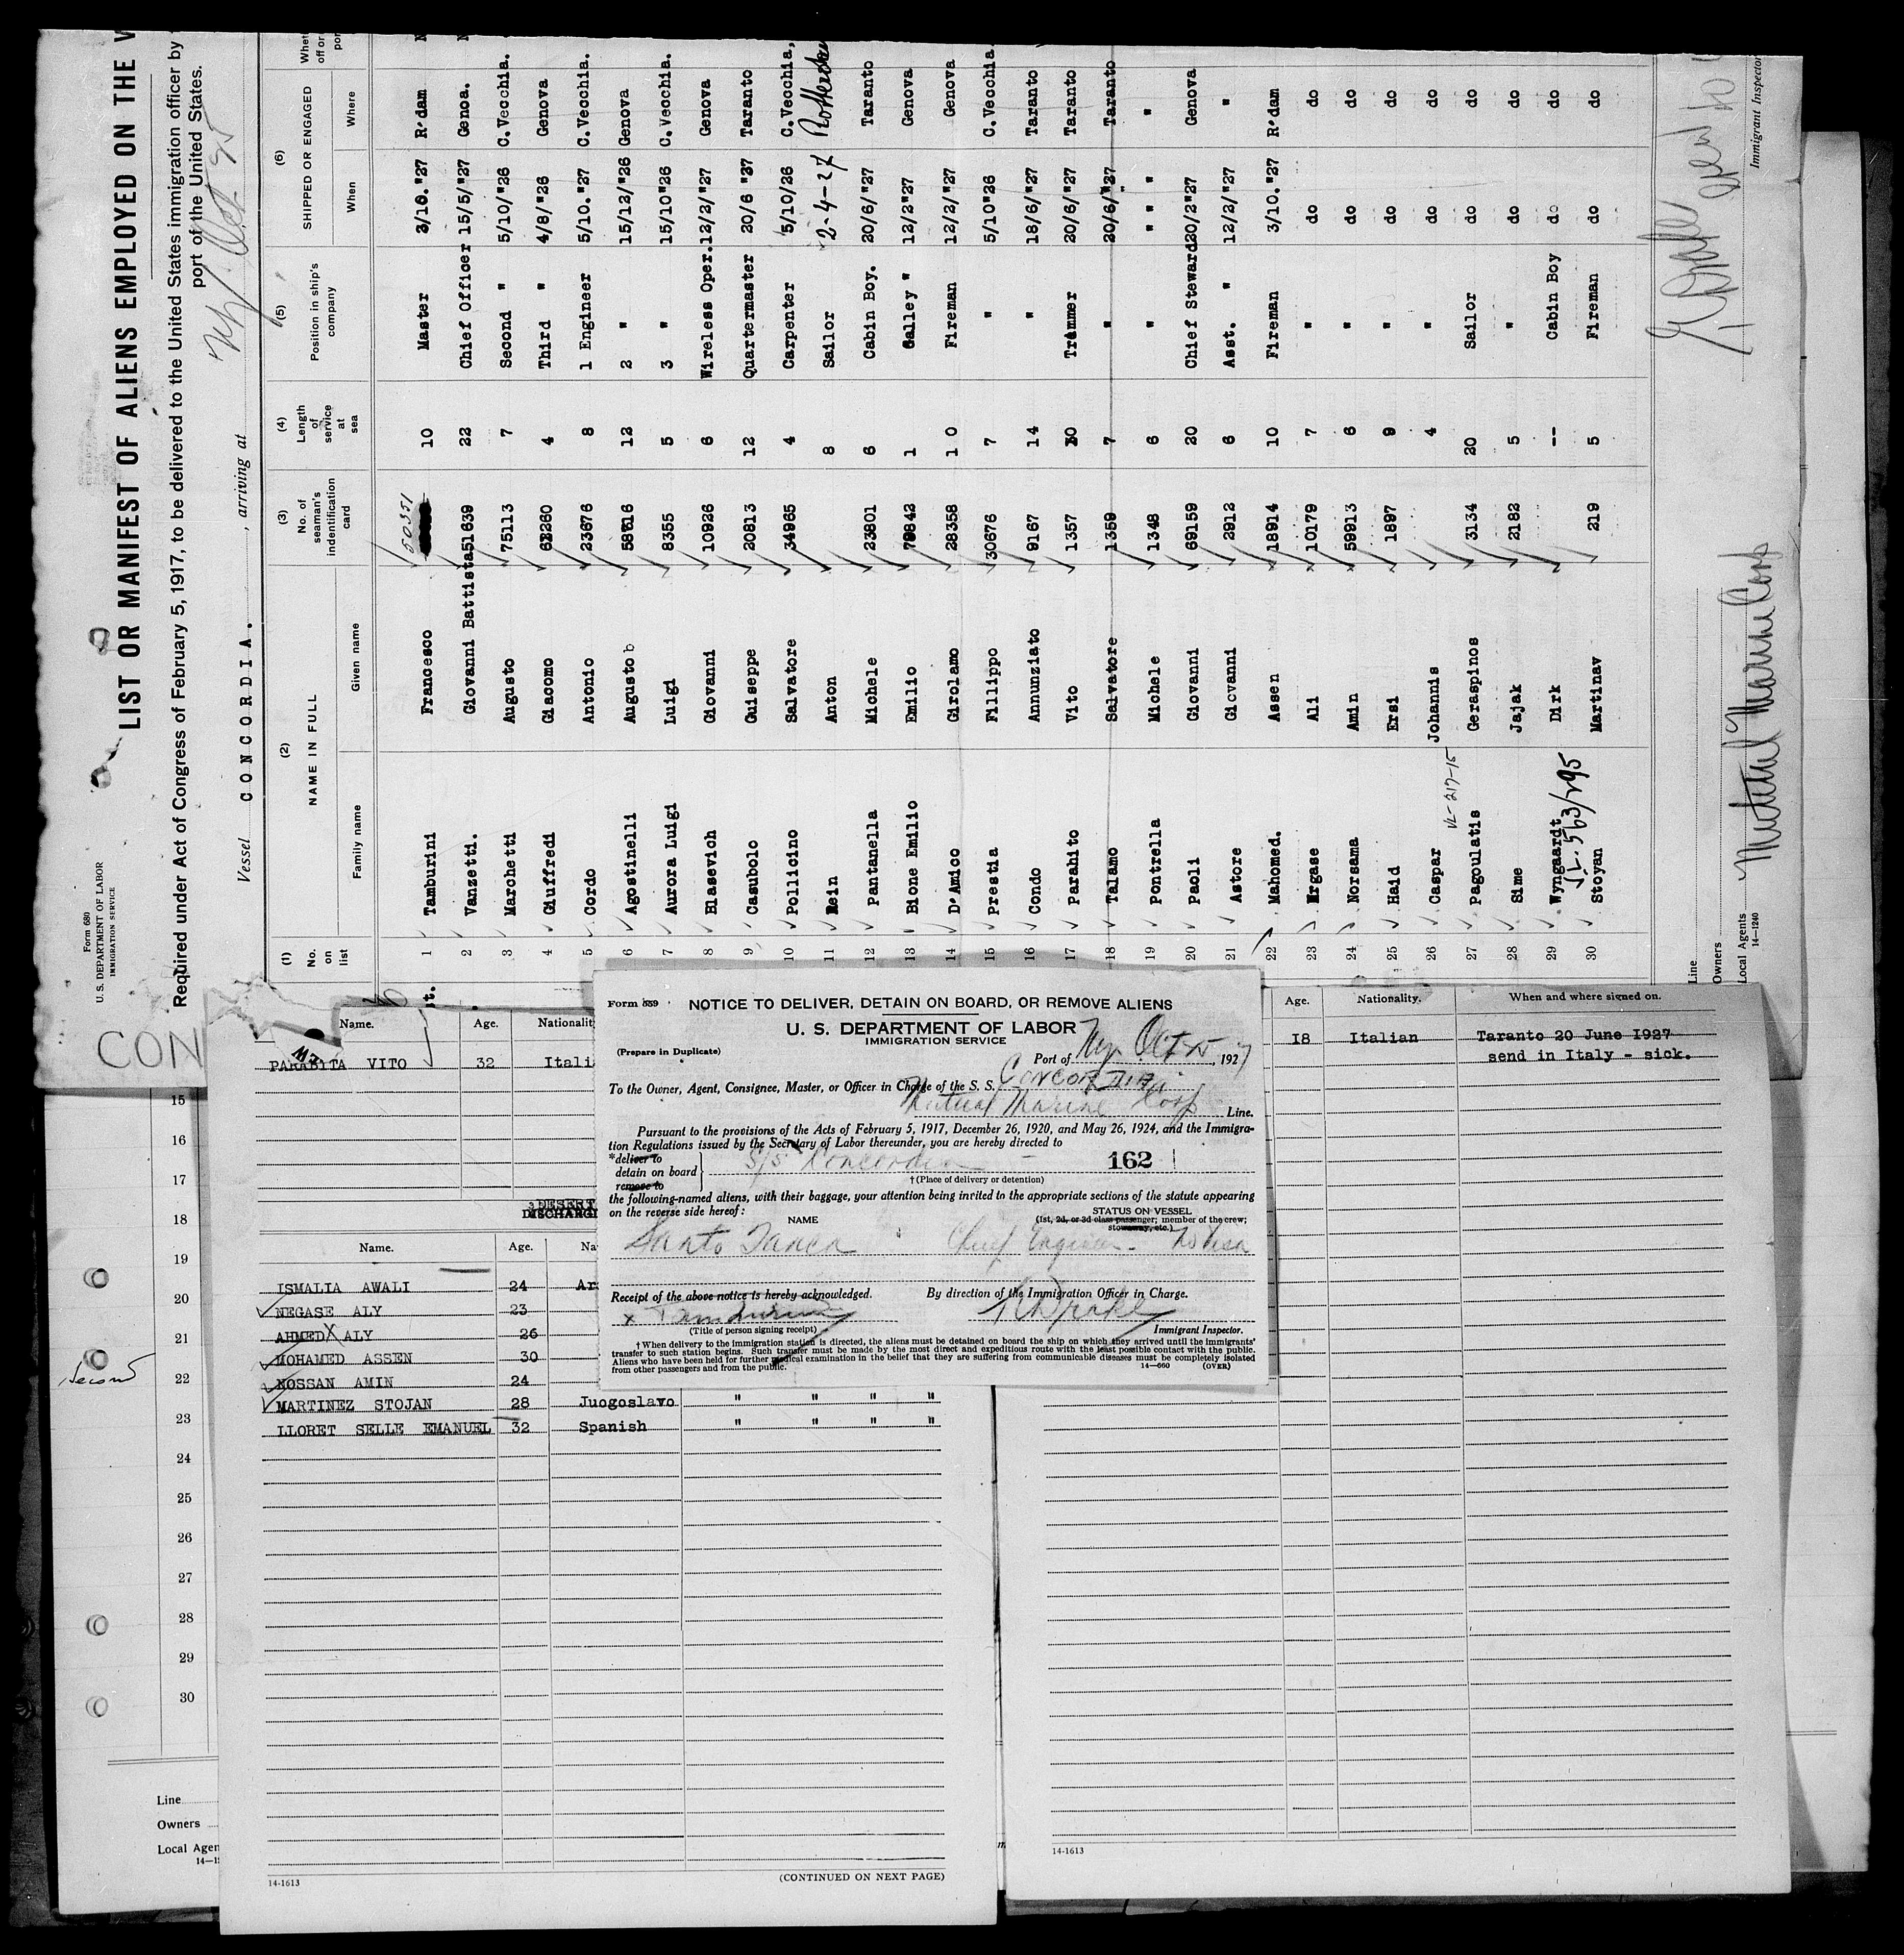 Form 680
U. S. DEPARTMENT OF LABOR
IMMIGRATION SERVICE
LIST OR MANIFEST OF ALIENS EMPLOYED ON THE V
Required under Act of Congress of February 5, 1917, to be delivered to the United States immigration officer by
port of the United States.
Vessel CONCORDIA. , arriving at
(1) (2) (3) (4) (5) (6)
No. on list NAME IN FULL No. of seaman's indentification card Length of service at sea Position in ship's company SHIPPED OR ENGAGED
Family name Given name When Where
1 Tamburini Francesco 50351 10 Master 3/10."27 R'dam
2 Vanzetti. Giovanni Battista 51639 22 Chief Officer 15/5/"27 Genoa.
3 Marchetti Augusto 75113 7 Second " 5/10/"26 C.Vecchia.
4 Giuffredi Giacomo 4 Third " 4/8/"26 Genova
5 Cordo Antonio 23676 8 1 Engineer 5/10."27 C.Vecchia.
6 Agostinelli Augusto 12 2 " 15/12/"26 Genova
7 Aurora Luigi Luigi 8355 5 3 " 15/10"26 C.Vecchia.
8 Blasevich Giovanni 10926 6 Wireless Oper. 12/2/"27 Genova
9 Casubolo Guiseppe 20813 12 Quartermaster 20/6 "27 Taranto
10 Pollicino Salvatore 34965 4 Carpenter 5/10/26 C.Vecchia,
11 Rein Anton 8 Sailor 2-4-27
12 Pantanella Michele 23801 6 Cabin Boy. 20/6/"27 Taranto
13 Bione Emilio Emilio 79842 1 Galley " 12/2"27 Genova
14 D'Amico Girolamo 28358 1 0 Fireman 12/2/"27 Genova
15 Prestia Fillippo 30676 7 " 5/10"26 C.Vecchia.
16 Condo Annunziato 9167 14 " 18/6/"27 Taranto
17 Parabito Vito 1357 Trimmer 20/6/"27 Taranto
18 Talamo Salvatore 1359 7 " 20/6/"27 Taranto
19 Pontrella Michele 1348 6 " " " "
20 Paoli Giovanni 69159 20 Chief Steward 20/2"27 Genova
21 Astore Giovanni 2912 6 Asst. " 12/2/"27 "
22 Mahomed. Assen 18914 10 Fireman 3/10."27 R'dam
23 Nrgase Ali 10179 7 " do do
24 Norsama Amin 59913 6 " do do
25 Haid Ersi 1897 9 " do do
26 Caspar Johannis 4 " do do
VL-217-15
27 Pagoulatis Geraspinos 3134 20 Sailor do do
28 Sime Jajak 2182 5 " do do
29 Wyngaardt Dirk -- Cabin Boy do do
30 Stoyan Martinav 219 5 Fireman do do
Line
Owners
Local Agents Mutual Marine Corp
14-1240
Immigrant Inspector
CON
Name. Age.
PARABITA VITO 32
Name. Age.
ISMALIA AWALI 24 Ar
NEGASE ALY 23
AHMED ALY 26
MOHAMED ASSEN 30
NOSSAN AMIN 24
MARTINEZ STOJAN 28 Juogoslavo " " " "
LLORET SELLE EMANUEL 32 Spanish " " " "
14-1613 (CONTINUED ON NEXT PAGE)
Form 559
NOTICE TO DELIVER, DETAIN ON BOARD, OR REMOVE ALIENS
U. S. DEPARTMENT OF LABOR
IMMIGRATION SERVICE
(Prepare in Duplicate)
Port of Ny. Oct 25, 1927
To the Owner, Agent, Consignee, Master, or Officer in Charge of the S. S. Concordia
Mutual Marine Corp Line.
Pursuant to the provisions of the Acts of February 5, 1917, December 26, 1920, and May 26, 1924, and the Immigra-
tion Regulations issued by the Secretary of Labor thereunder, you are hereby directed to
*deliver to
detain on board S/S Concordia 162
remove to
†(Place of delivery or detention)
the following-named aliens, with their baggage, your attention being invited to the appropriate sections of the statute appearing
on the reverse side hereof:
NAME STATUS ON VESSEL
(1st, 2d, or 3d class passenger; member of the crew;
stowaway, etc.)
Santo Chief Engineer. No Visa
Receipt of the above notice is hereby acknowledged. By direction of the Immigration Officer in Charge.
x Tamburini
(Title of person signing receipt) Immigrant Inspector.
†When delivery to the immigration station is directed, the aliens must be detained on board the ship on which they arrived until the immigrants'
transfer to such station begins. Such transfer must be made by the most direct and expeditious route with the least possible contact with the public.
Aliens who have been held for further medical examination in the belief that they are suffering from communicable diseases must be completely isolated
from other passengers and from the public. 14-660 (OVER)
Age. Nationality. When and where signed on.
18 Italian Taranto 20 June 1927
send in Italy - sick.
14-1613
15
16
17
18
19
20
21
22
23
24
25
26
27
28
29
30
Line
Owners
Local Agen